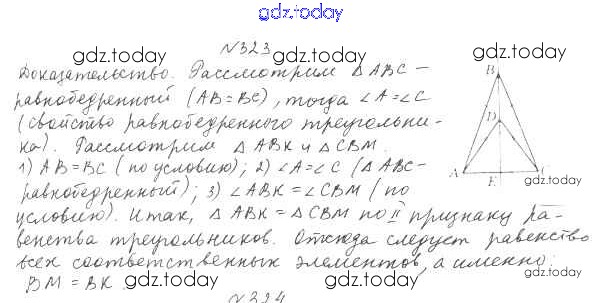 gdz.today
№323
gdz.today gdz.today gdz.today
Доказательство. Рассмотрим △ABC –
равнобедренный (AB = BC), тогда ∠A = ∠C
(свойство равнобедренного треугольни-
ка). Рассмотрим △ABK и △CBM.
1) AB = BC (по условию); 2) ∠A = ∠C (△ABC –
равнобедренный); 3) ∠ABK = ∠CBM (по
условию). Итак, △ABK = △CBM по II признаку ра-
венства треугольников. Отсюда следует равенство
всех соответственных элементов, а именно:
BM = BK
B
D
A E C
gdz.today
gdz.today gdz.today
gdz.today
gdz.today gdz.today gdz.today
gdz.today gdz.today gdz.today
№324